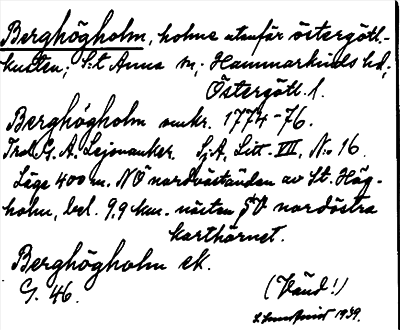 Berghögholm, holme utanför östergötl.-
kusten; S:t Anna sn; Hammarkinds hd;
Östergötl. l.
Berghögholm omkr. 1774-76.
Trol. G. A. Lejonanker. SjA, Litt. VII, No 16.
Läge 400 m. NÖ nordväständen av St. Hög-
holm, bel. 9,9 km. nästan SV nordöstra
karthörnet.
Berghögholm ek.
G. 46.
(Vänd!)
1939.